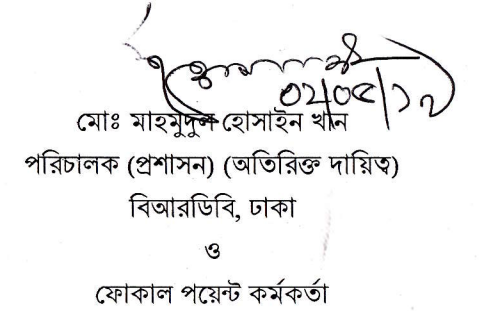 ০২/০৫/১৭
মোঃ মাহমুদুল হোসাইন খান
পরিচালক (প্রশাসন) (অতিরিক্ত দায়িত্ব)
বিআরডিবি, ঢাকা
ও
ফোকাল পয়েন্ট কর্মকর্তা